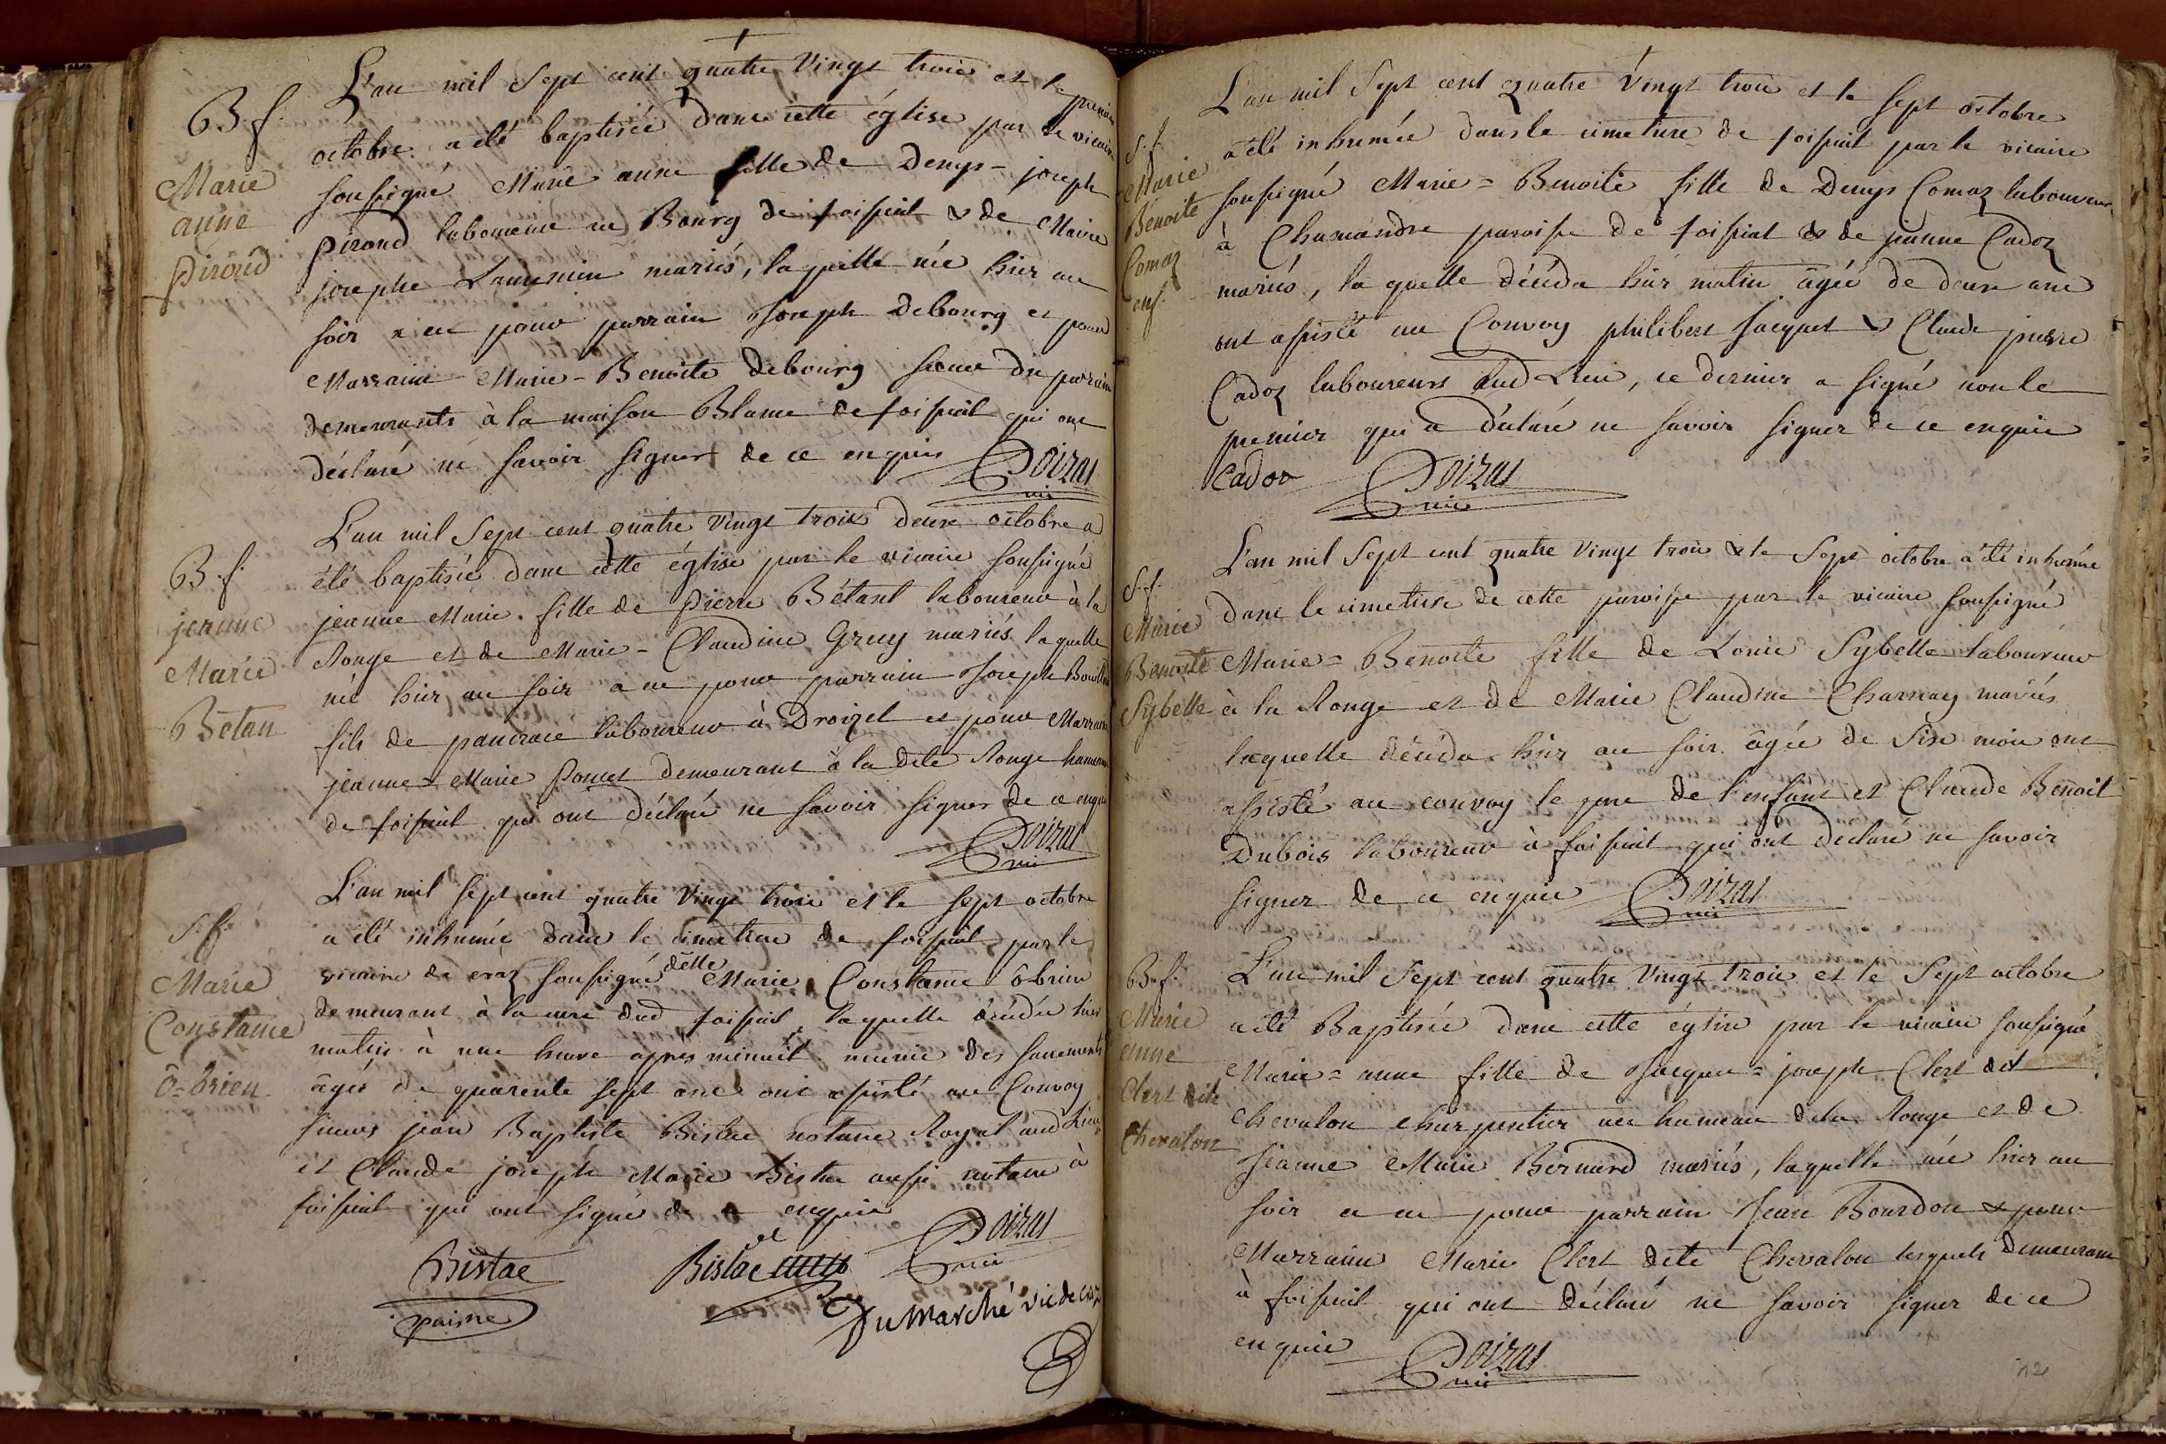 B. f.
Marie
anne
piroud
L'an mil sept cent quatre vingt trois et le premier
octobre a été baptisée dans cette église par le vicaire
soussigné Marie anne fille de Denys = joseph
piroud laboureur au Bourg de foissiat & de Marie
josephe Laurencin mariés, laquelle née hier au
soir a eu pour parrain Joseph Debourg et pour
Marraine Marie = Benoite debourg soeur du parrain
demeurants à la maison Blame de foissiat qui ont
déclaré ne savoir signer de ce enquis Doizas
vic
B. f.
jeanne
Marie
Bétan
L'an mil sept cent quatre vingt trois deux octobre a
été baptisée dans cette église par le vicaire soussigné
jeanne Marie fille de pierre Bétant laboureur à la
Rouge et de Marie = Claudine Gruy mariés laquelle
née hier au soir a eu pour parrain Joseph
fils de pancrace laboureur à Droizel et pour Marraine
jeanne = Marie Poncet demeurant à la dite Rouge hameau
de foissiat qui ont déclaré ne savoir signer de ce enquis
Doizas
vic
S. f.
Marie
Constance
ô-brien
L'an mil sept cent quatre vingt trois et le sept octobre
a été inhumée dans le cimetiere de foissiat par le
vicaire de cras soussigné delle Marie Constance ô-brien
demeurant à la cure dud foissiat, laquelle décédée hier
matin à une heure après minuit munie des sacrements
âgée de quarente sept ans ont assisté au Convoy
sieurs jean Baptiste Bistac notaire Royal aud Lieu
et Claude joseph Marie Bistac aussi notaire à
foissiat qui ont signé de ce enquis
Bistac Bistac Doizas
paisne vic
Dumarché vic de cras
S. f.
Marie
Benoite
Comaz
enf.
L'an mil sept cent quatre vingt trois et le sept octobre
a été inhumée dans le cimetiere de foissiat par le vicaire
soussigné Marie = Benoite fille de Denys Comaz laboureur
à Chamandre paroisse de foissiat & de jeanne Cadoz
mariés, la quelle décéda hier matin âgée de deux ans
ont assisté au Convoy philibert jacquet & Claude pierre
Cadoz laboureurs dud Lieu, ce dernier a signé non le
premier qui a déclaré ne savoir signer de ce enquis
Cadoz Doizas
vic
S. f.
Marie
Benoite
Sybelle
L'an mil sept cent quatre vingt trois & le sept octobre a été inhumée
dans le cimetiere de cette paroisse par le vicaire soussigné
Marie = Benoite fille de Louis Sybelle laboureur
à la Rouge et de Marie Claudine Charnay mariés
laquelle décéda hier au soir âgée de six mois ont
assisté au convoy le pere de l'enfant et Claude Benoit
Dubois laboureur à foissiat qui ont déclaré ne savoir
signer de ce enquis Doizas
vic
B. f.
Marie
anne
Clert dit
Chevalon
L'an mil sept cent quatre vingt trois et le sept octobre
a été Baptisée dans cette église par le vicaire soussigné
Marie = anne fille de Jacques = joseph Clert dit
chevalon charpentier au hameau de la Rouge et de
Jeanne Marie Bernard mariés, laquelle née hier au
soir a eu pour parrain Jean Bourdon & pour
Marraine Marie Clert dite Chevalon lesquels demeurant
à foissiat qui ont déclaré ne savoir signer de ce
enquis Doizas
vic